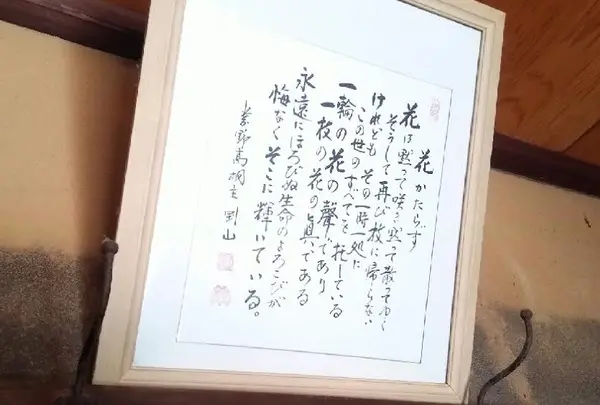 花かたらず
花は黙って咲き黙って散ってゆく
そうして再び枝に帰らない
けれどもその一時一処に
この世のすべてを托している
一輪の花の聲であり
一枝の花の眞である
永遠にほろびぬ生命のよろこびが
悔なくそこに輝いている。
紫野高桐主 剛山